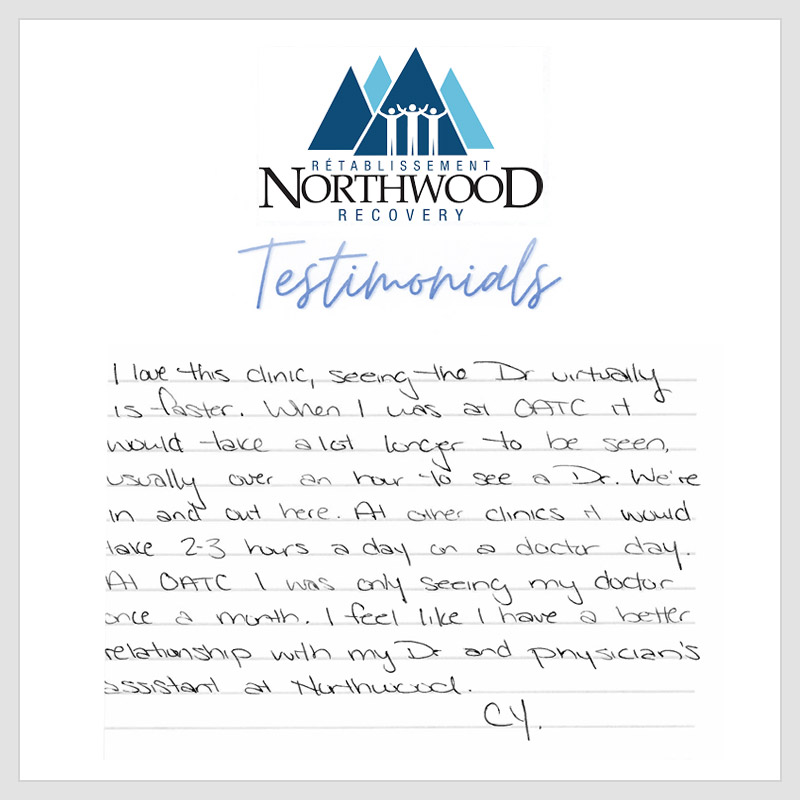 RÉTABLISSEMENT
NORTHWOOD
RECOVERY
Testimonials
I love this clinic, seeing the Dr virtually
is faster. When I was at OATC it
would take alot longer to be seen,
usually over an hour to see a Dr. We're
in and out here. At other clinics it would
take 2-3 hours a day on a doctor day.
At OATC I was only seeing my doctor
once a month. I feel like I have a better
relationship with my Dr and physician's
assistant at Northwood.
CY.